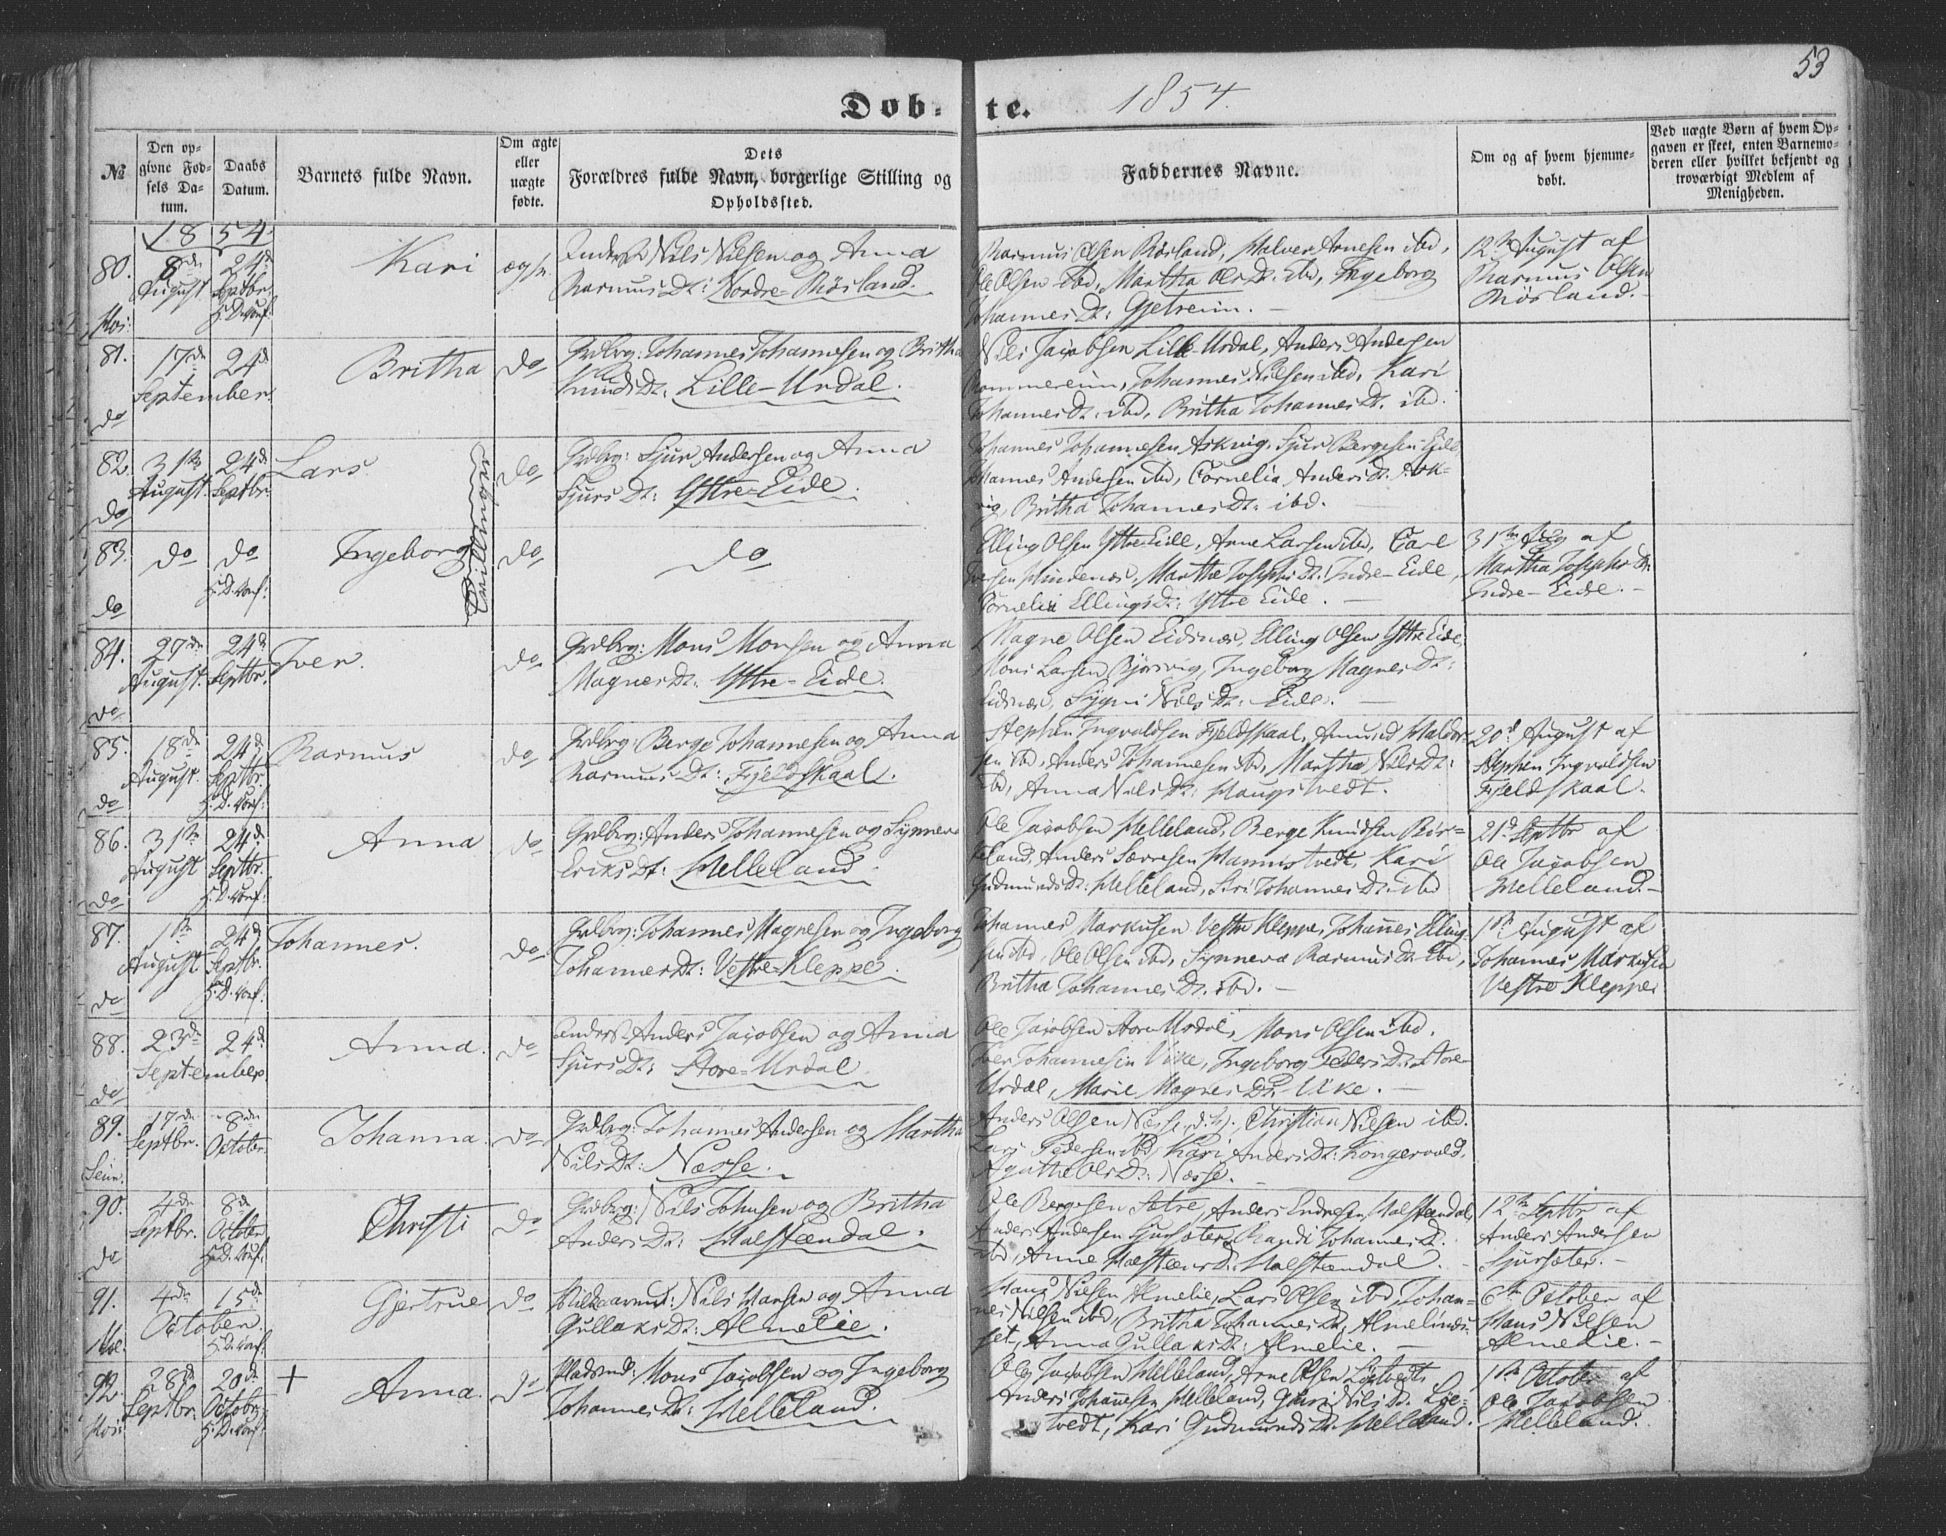 53
Døb-te. 1854.
№
Den opgivne Fødsels Datum.
Daabs Datum.
Barnets fulde Navn.
Om ægte eller uægte fødte.
Dets Forældres fulde Navn, borgerlige Stilling og Opholdssted.
Faddernes Navne.
Om og af hvem hjemmedøbt.
Ved uægte Børn af hvem Opgaven er skeet, enten Barnemoderen eller hvilket bekjendt og troværdigt Medlem af Menigheden.
1854
80. 8de August 24de Septbr. H.D. Conf: Kari ægte Nils Nilsen og Anna
Rasmus Dt: Nordre-Røsland.
Rasmus Olsen Røsland, Halver Arnesen ibd,
Ole Olsen ibd, Martha Ols Dt: ibd, Ingeborg
Johannes Dt: Gjetreim. —
12te August af
Rasmus Olsen
Røsland. —
81. do 17de 24de September Britha do Grdbrg: Johannes Johannesen og Britha
Knuds Dt: Lille-Urdal.
Nils Jacobsen Lille-Urdal, Anders Andersen
Rommereim, Johannes Nilsen ibd, Kari
Johannes Dt: ibd, Britha Johannes Dt. ibd.
82. do 31te August 24de Septbr. Lars do Grdbrg: Sjur Andersen og Anna
Sjurs Dt: Yttre-Eide.
Tvillinger
Johannes Johannesen Askvig, Sjur Bergesen Eide
Hannes Andersen ibd, Cornelia Anders Dt. Ask-
vig, Britha Johannes Dt: ibd.
83. do do do Ingeborg do do
Elling Olsen Yttre Eide, Arne Larsen ibd, Carl
Iversen Mindenæs, Martha Josephs Dt: Indre-Eide,
Cornelia Ellings Dt: Yttre Eide. —
31te Aug af
Martha Josephs Dt:
Indre-Eide. —
84. do 27de August. 24de Septbr. Iver. do Grdbrg: Mons Monsen og Anna
Magnes Dt: Yttre-Eide.
Magne Olsen Eidsnæs, Elling Olsen Yttre Eide,
Mons Larsen Bjørsvig, Ingeborg Magnes Dt:
Eidsnæs, Nils Dt: Eide. —
85. do 18de August. 24de Septbr. Rasmus do Grdbrg: Berge Johannesen og Anna
Rasmus Dt: Fjeldskaal.
Stephen Ingvaldsen Fjeldskaal, Amund Haldor-
sen ibd, Anders Johannesen ibd, Martha Nils Dt:
ibd, Anna Nils Dt: Haugstvedt.
20de August af
Stephen Ingvaldsen
Fjeldskaal.
86. do 31te August 24de Septbr. Anna do Grdbrg: Anders Johannesen og Synneva
Eriks Dt: Helleland.
Ole Jacobsen Helleland, Berge Knudsen Røs-
land, Anders Særvesen Hannistvedt, Kari
Gudmunds Dt: Helleland, Siri Johannes Dt: ibd
21de Septbr af
Ole Jacobsen
Helleland. —
87. do 1te August 24de Septbr. Johannes. do Grdbrg: Johannes Magnesen og Ingeborg
Johannes Dt: Vestre-Kleppe.
Johannes Markusen Vestre Kleppe, Johannes Elling-
sen ibd, Ole Olsen ibd, Synneva Rasmus Dt: ibd,
Britha Johannes Dt. ibd. —
1te August af
Johannes Markusen
Vestre Kleppe
88. do 23de 24de September Anna. do Anders Jacobsen og Anna
Sjurs Dt: Store-Urdal
Ole Jacobsen Store-Urdal, Mons Olsen ibd.
Iver Johannesen Vike, Ingeborg Peders Dt: Store-
Urdal, Marie Magnes Dt: Vike. —
89. 17de Septbr. 8de October Johanna. do Grdbrg: Johannes Andersen og Martha
Nils Dt: Næsse.
Anders Olsen Næsse, Christian Nilsen ibd.
Lars Pedersen ibd, Kari Anders Dt: Kongevold,
Agathe Ols Dt: Næsse. —
90. do 4de Septbr. 8de October Christi do Grdbrg: Nils Johnsen og Britha
Anders Dt: Halstændal.
Ole Bergesen Sætre, Anders Endresen Halstændal,
Anders Andersen Sjursæter, Randi Johannes Dt.
ibd, Anne Halstens Dt: Halstændal. —
12te Septbr af
Anders Andersen
Sjursæter. —
91. 4de 15de October Gjertrue do Nils Hansen og Anna
Gullaks Dt: Almelie.
Hans Nilsen Almelie, Lars Olsen ibd, Johan-
nes Nilsen ibd, Britha Johannes Dt. Almelines-
set, Anna Gullaks Dt: Almelie. —
6te October af
Hans Nilsen
Almelie. —
92 28de Septbr. 20de October + Anna. do Pladsmd: Mons Jacobsen og Ingeborg
Johannes Dt: Helleland.
Ole Jacobsen Helleland, Arne Olsen
Anders Johannesen Helleland, Guri Nils Dt. Løt-
tvedt, Kari Gudmunds Dt: Helleland.
1te October af
Ole Jacobsen
Helleland.